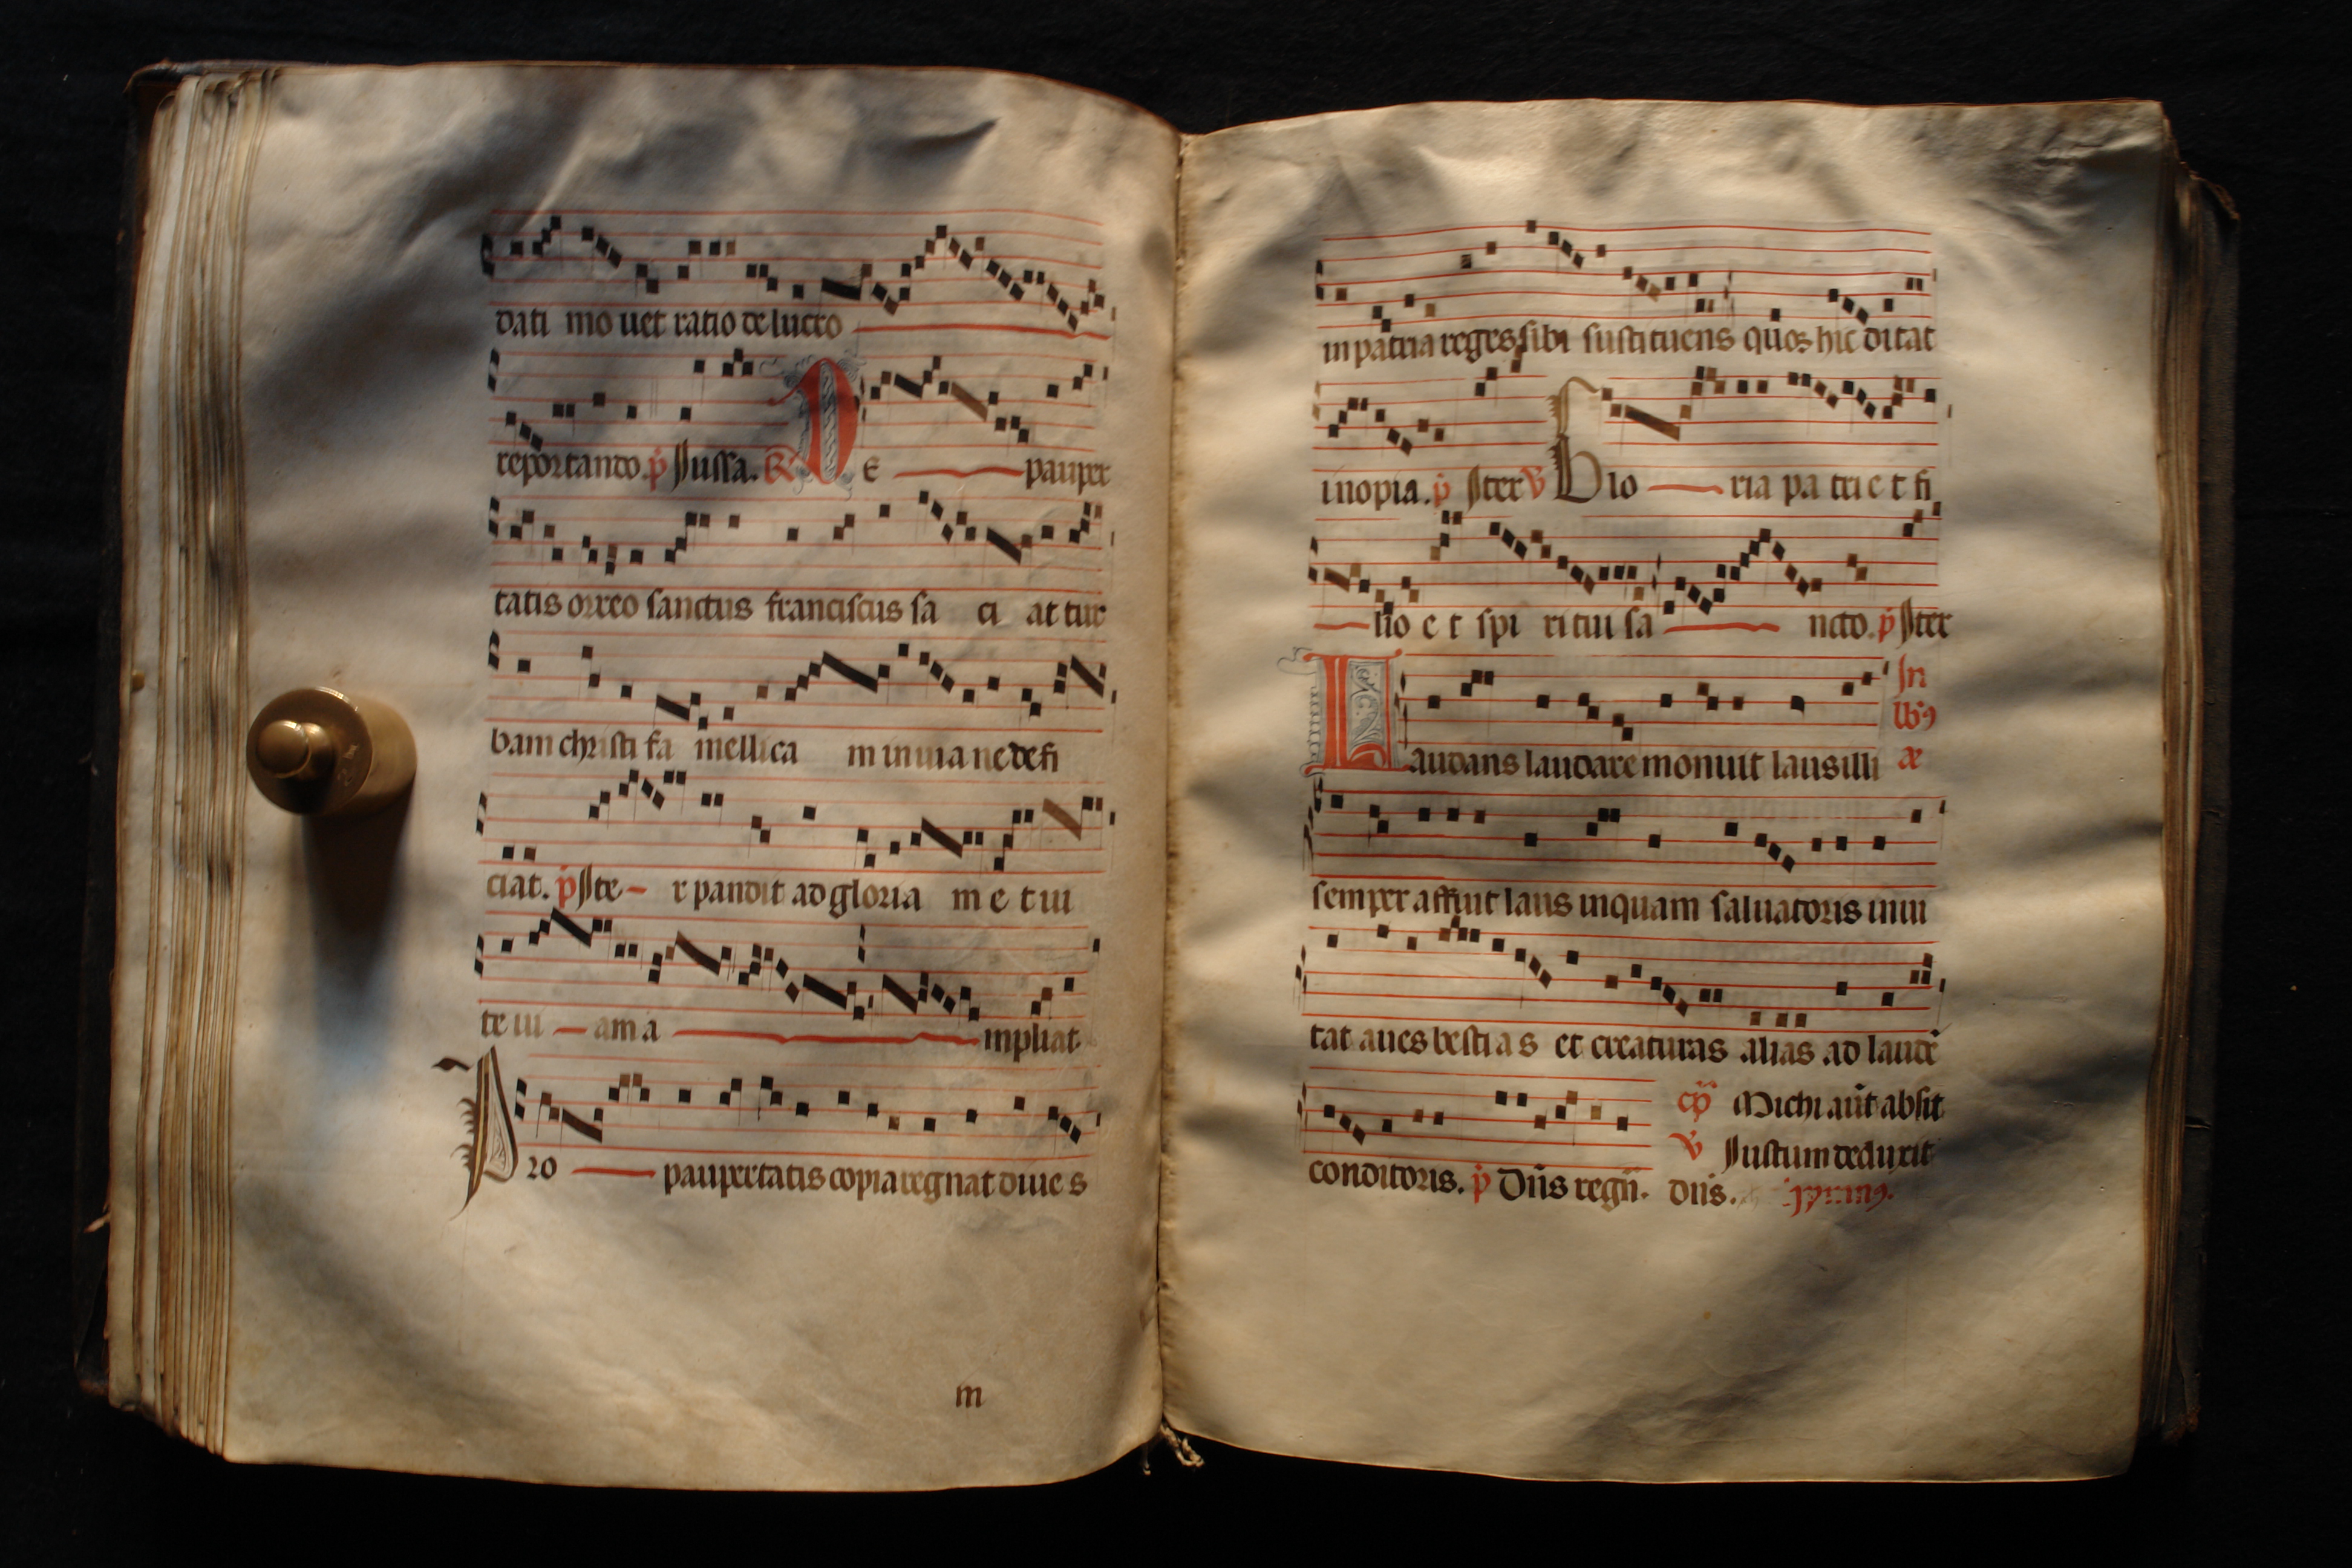 dati mo uet ratio de lucro
reportando. p̄ Jussa. R̄ DE pauper
tatis orreo sanctus franciscus sa ci at tur
bam christi fa mellica m in uia ne defi
ciat. p̄ Iter pandit ad gloria m e t ui
te ui am a mpliat
Pro paupertatis copia regnat diues
m
in patria reges sibi sustituens quos hic ditat
inopia. p̄ Iter v̄ Glo ria pa tri e t fi
lio e t spi ritui sa ncto. p̄ Iter
In
Laudans laudare monuit laus illi
semper affuit laus inquam saluatoris inui
tat aues bestias et creaturas alias ad laudē
cp̄ Michi aūt absit
v̄ Justum deduxit
conditoris. p̄ Dn̄s regn̄. dn̄s.